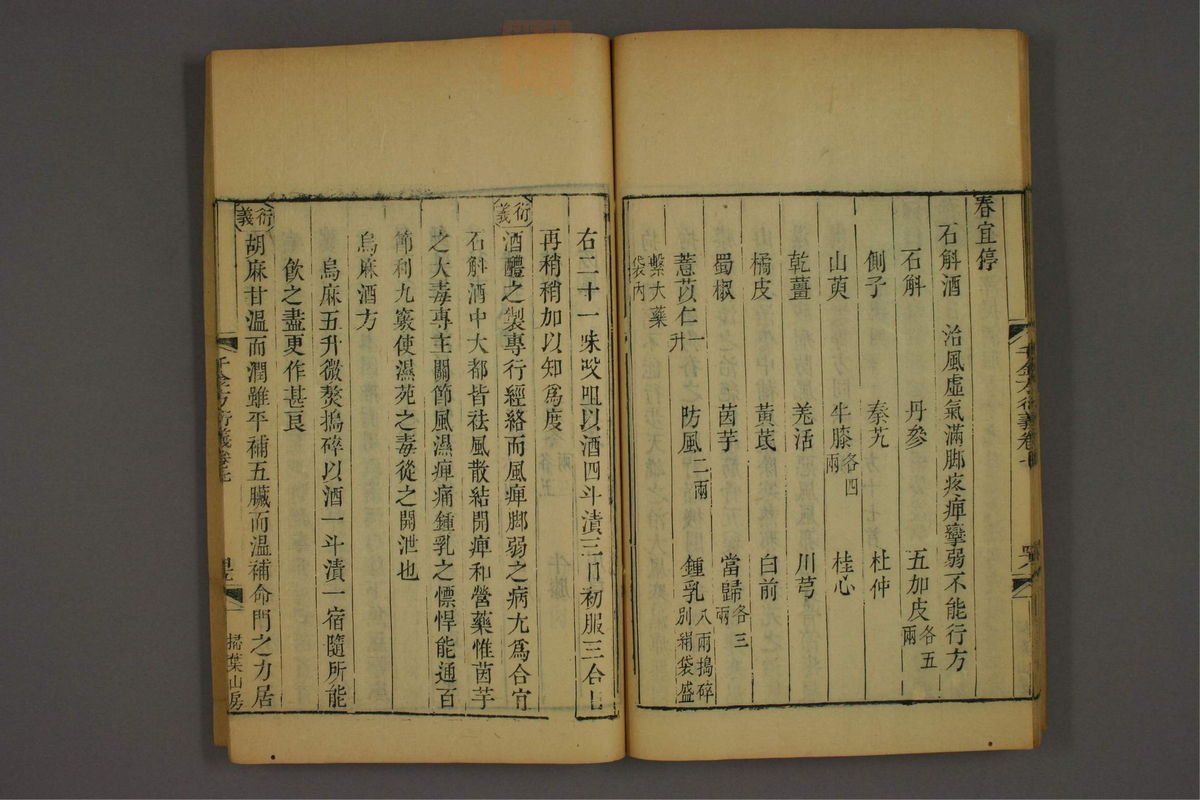 春宜停
石斛酒　治風虛氣滿脚疼痺攣弱不能行方
石斛　丹參　五加皮各五兩
側子　秦艽　杜仲
山萸　牛膝各四兩　桂心
乾薑　羗活　川芎
橘皮　黃茋　白前
蜀椒　茵芋　當歸各三兩
薏苡仁一升　防風二兩　鍾乳八兩搗碎別絹袋盛
繫大藥袋內
右二十一味㕮咀以酒四斗漬三日初服三合日
再稍稍加以知爲度
衍義
酒醴之製專行經絡而風痺脚弱之病尤爲合宜
石斛酒中大都皆祛風散結開痺和營藥惟茵芋
之大毒專主關節風濕痺痛鍾乳之慓悍能通百
節利九竅使濕苑之毒從之開泄也
烏麻酒方
烏麻五升微熬搗碎以酒一斗漬一宿隨所能
飲之盡更作甚良
衍義
胡麻甘溫而潤雖平補五臟而溫補命門之力居
千金方衍義卷七
掃葉山房